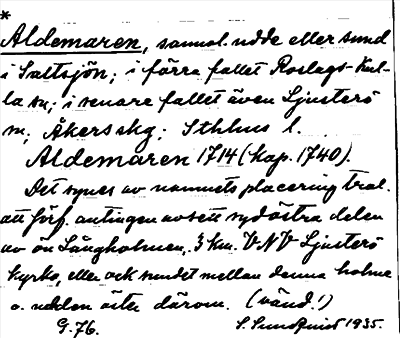 *
Aldemaren, sannol. udde eller sund
i Saltsjön; i förra fallet Roslags-Kul-
la sn; i senare fallet även Ljusterö
sn; Åkers skg; Sthlms l.
Aldemaren 1714 (kop. 1740).
Det synes av namnets placering trol.
att förf. antingen avsett sydöstra delen
av ön Långholmen, 3 km. VNV Ljusterö
kyrka, eller ock sundet mellan denna holme
o. udden öster därom. (vänd!)
G. 76. S. Sundquist 1935.